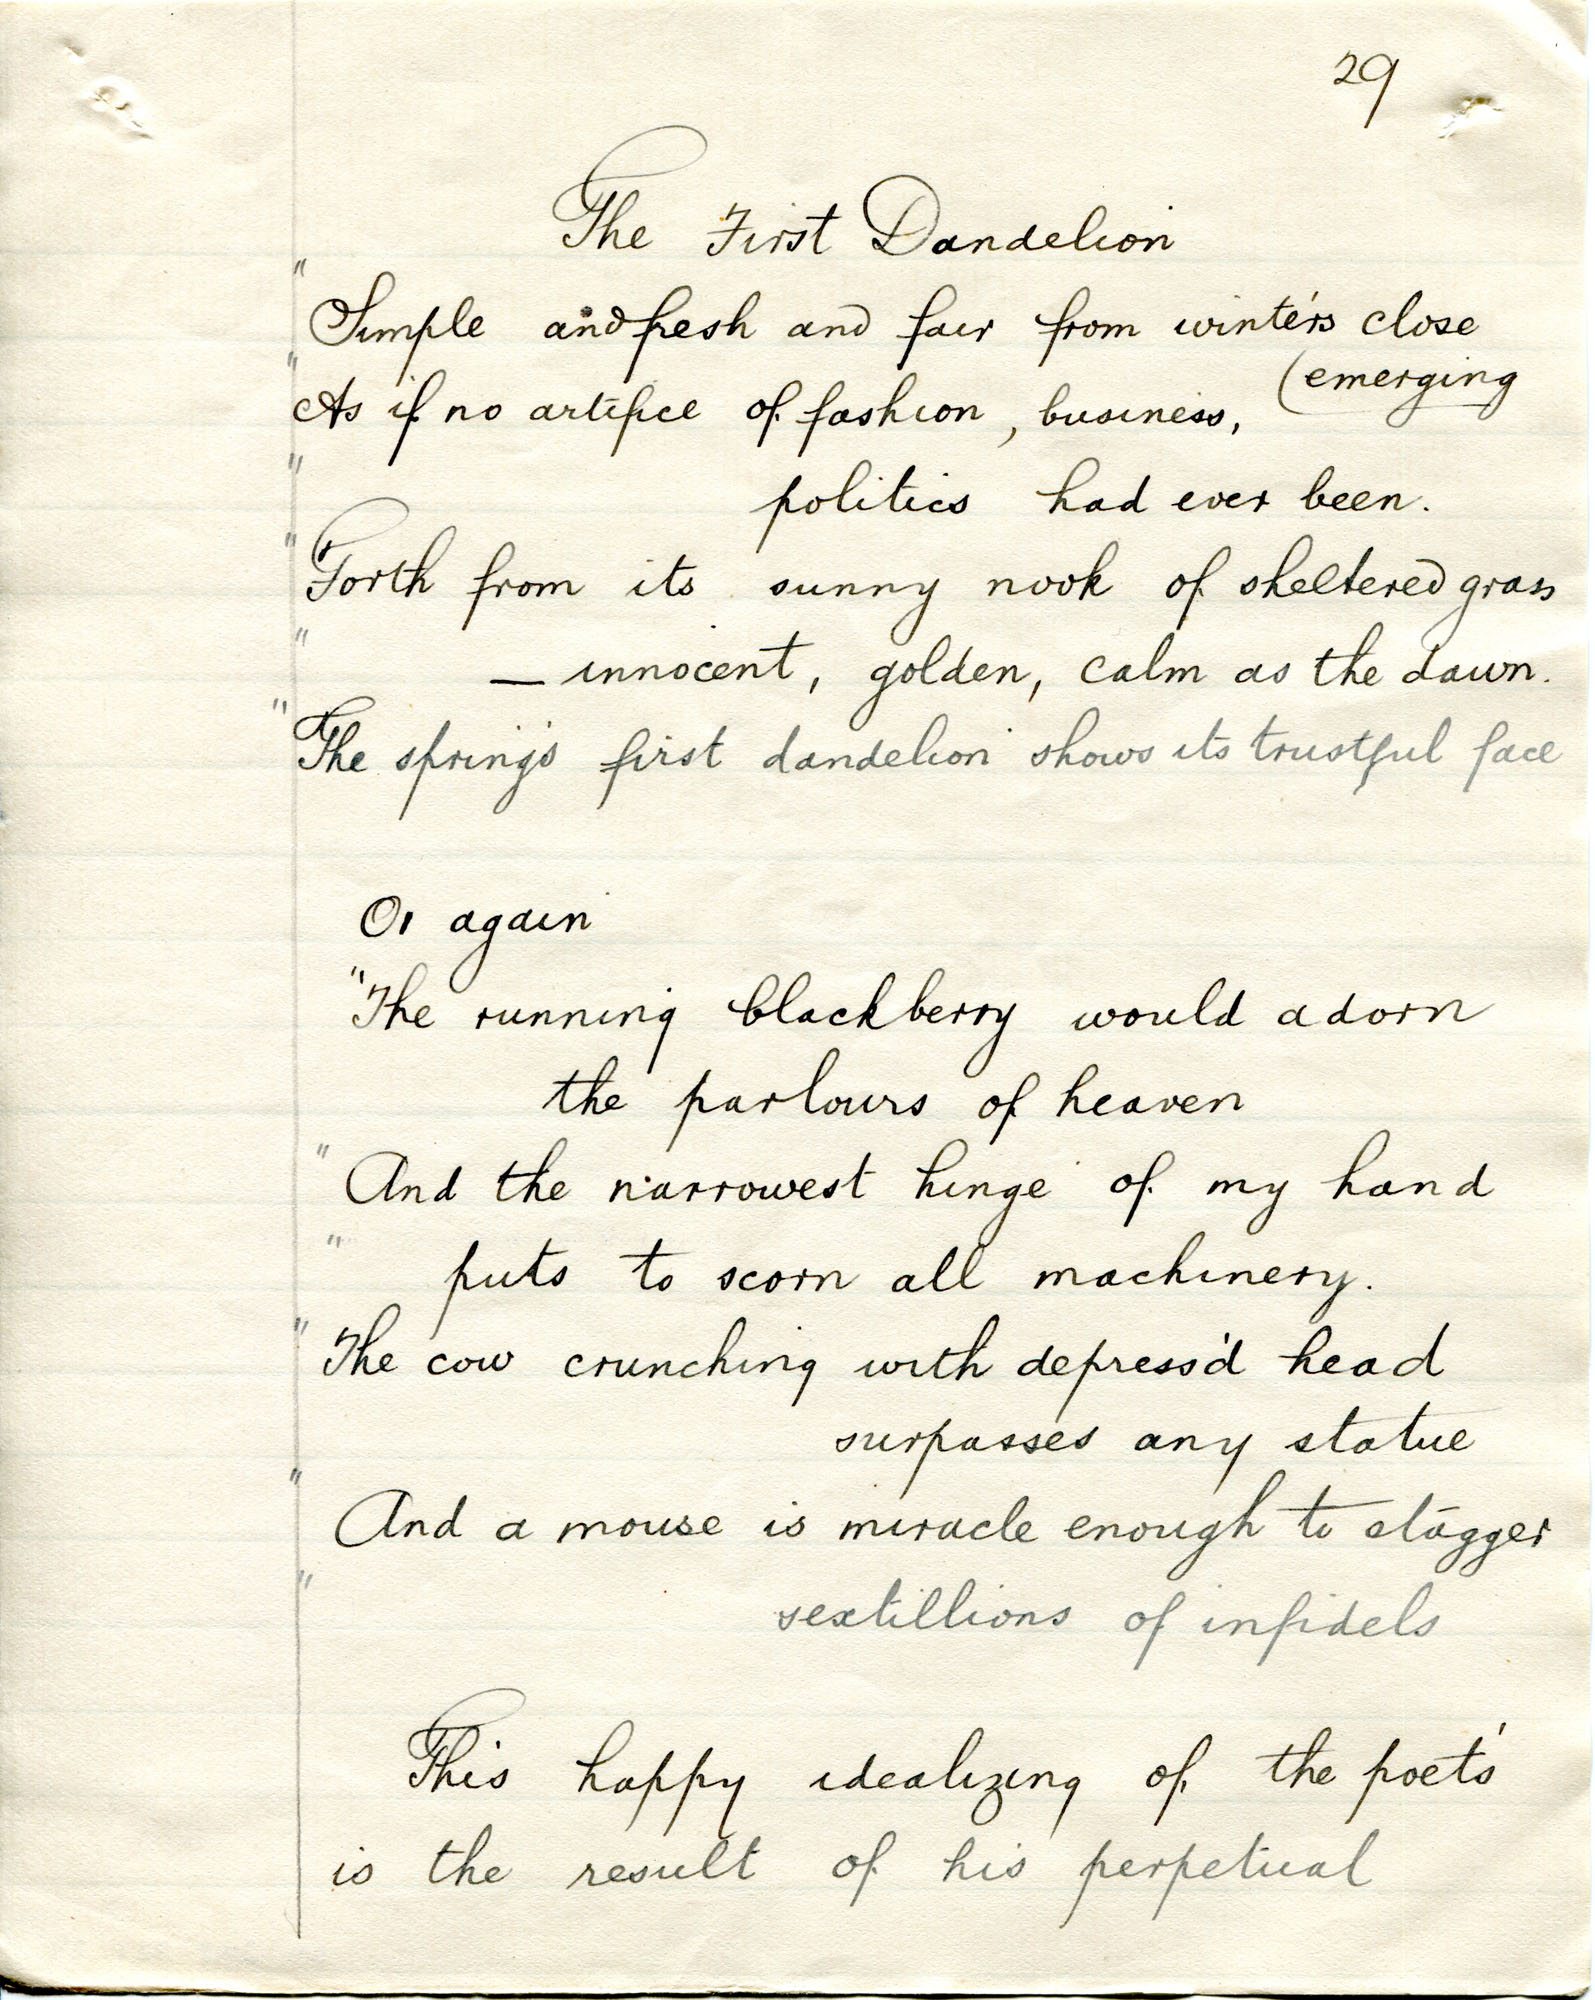 29
The First Dandelion
"Simple and fresh and fair from winter's close
(emerging
"As if no artifice of fashion, business,
" politics had ever been.
"Forth from its sunny nook of sheltered grass
" — innocent, golden, calm as the dawn.
"The spring's first dandelion shows its trustful face
Or again
"The running blackberry would adorn
the parlours of heaven
"And the narrowest hinge of my hand
" puts to scorn all machinery.
"The cow crunching with depress'd head
surpasses any statue
"And a mouse is miracle enough to stagger
" sextillions of infidels
This happy idealizing of the poet's
is the result of his perpetual